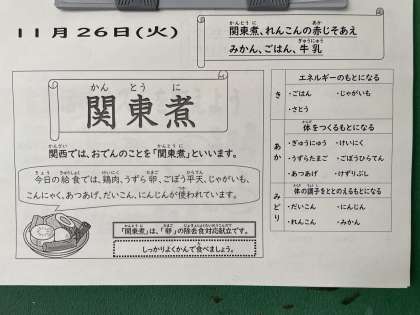 11月26日(火)
関東煮、れんこんの赤じそあえ
みかん、ごはん、牛乳
かんとうに
関東煮
関西では、おでんのことを「関東煮」といいます。
今日の給食では、鶏肉、うずら卵、ごぼう平天、じゃがいも、
こんにゃく、あつあげ、だいこん、にんじんが使われています。
「関東煮」は、「卵」の除去食対応献立です。
しっかりよくかんで食べましょう。
き
エネルギーのもとになる
・ごはん ・じゃがいも
・さとう
あか
体をつくるもとになる
・ぎゅうにゅう ・けいにく
・うずらたまご ・ごぼうひらてん
・あつあげ ・けずりぶし
みどり
体の調子をととのえるもとになる
・だいこん ・にんじん
・れんこん ・みかん